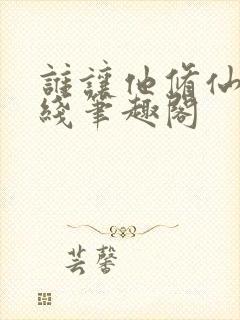 誰讓他修仙
綫筆趣閣
芸馨